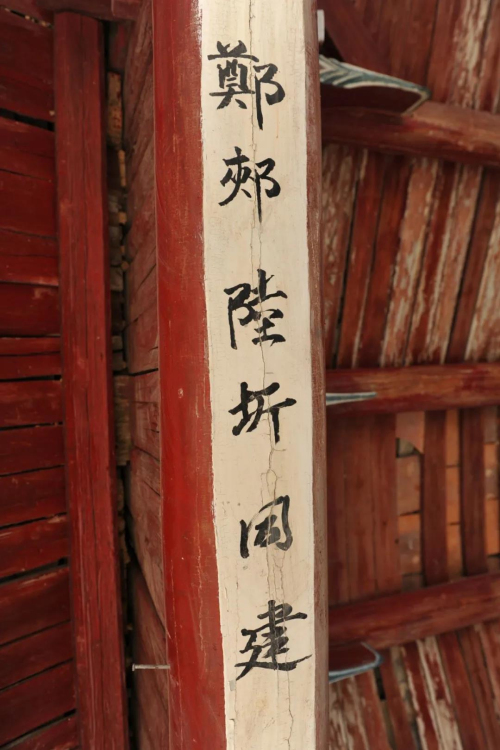 鄭郟陸圻同建